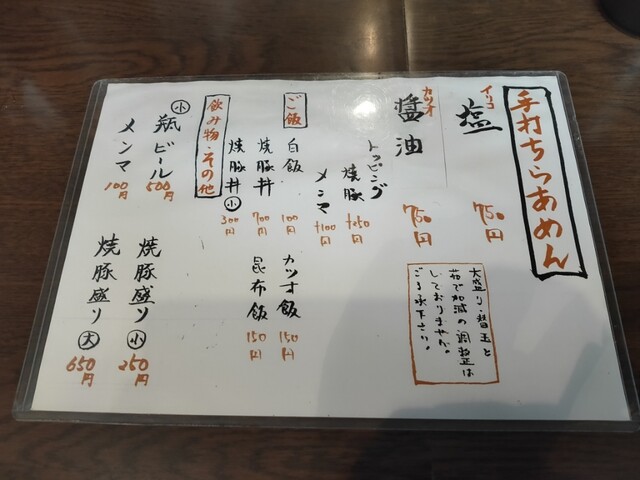 手打ちらあめん
イリコ
塩
750円
カツオ
醤油
750円
トッピング
焼豚 +250円
メンマ +100円
大盛り・替玉と
茹で加減の調整は
しておりません。
ご了承下さい。
ご飯
白飯 100円
焼豚丼 700円
焼豚丼 小 300円
カツオ飯 150円
昆布飯 150円
飲み物・その他
小瓶ビール 500円
メンマ 100円
焼豚盛り 小 250円
焼豚盛り 大 650円